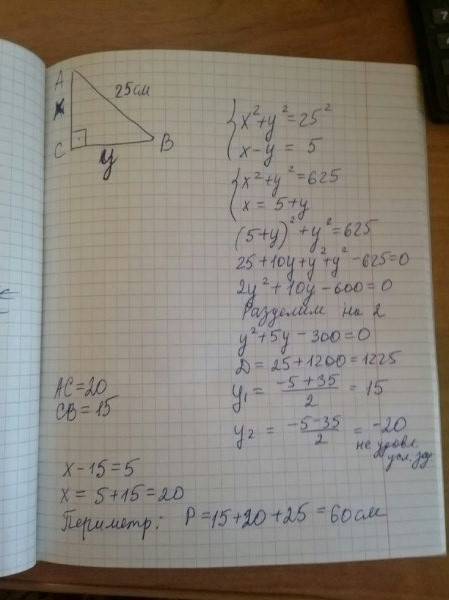 A
25см
x
C
y
B
x²+y²=25²
x-y = 5
x²+y²=625
x = 5+y
(5+y)²+y²=625
25+10y+y²+y²-625=0
2y²+10y-600=0
Разделим на 2
y²+5y-300=0
D=25+1200=1225
y₁ = (-5+35)/2 = 15
y₂ = (-5-35)/2 = -20
не удовл.
усл. зад.
AC=20
CB=15
x-15=5
x = 5+15=20
Периметр: P=15+20+25=60см